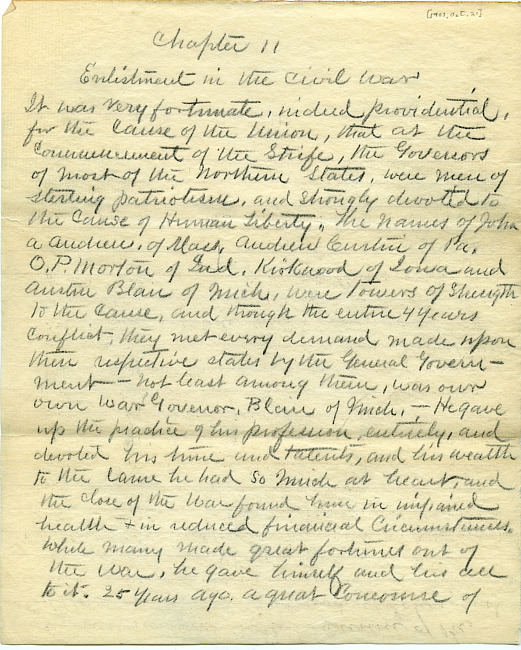 [1903, Oct. 21]
Chapter 11
Enlistment in the Civil War
It was very fortunate, indeed providential,
for the Cause of the Union, that at the
Commencement of the Strife, the Governors
of most of the Northern States, were men of
sterling patriotism, and strongly devoted to
the Cause of Human Liberty. The names of John
a Andrew, of Mass, Andrew Curtin of Pa.
O.P. Morton of Ind. Kirkwood of Iowa and
Austin Blair of Mich, were Towers of Strength
to the Cause, and though the entire 4 years
Conflict, they met every demand made upon
their respective states by the General Govern-
ment - not least among them, was our
own War Governor, Blair of Mich, - He gave
up the practice of his profession, entirely, and
devoted his time and talents, and his wealth
to the cause he had so much at heart, and
the close of the War found him in impaired
health + in reduced financial Circumstances.
While many made great fortunes out of
the War, he gave himself and his all
to it. 25 years ago. a great Concourse of